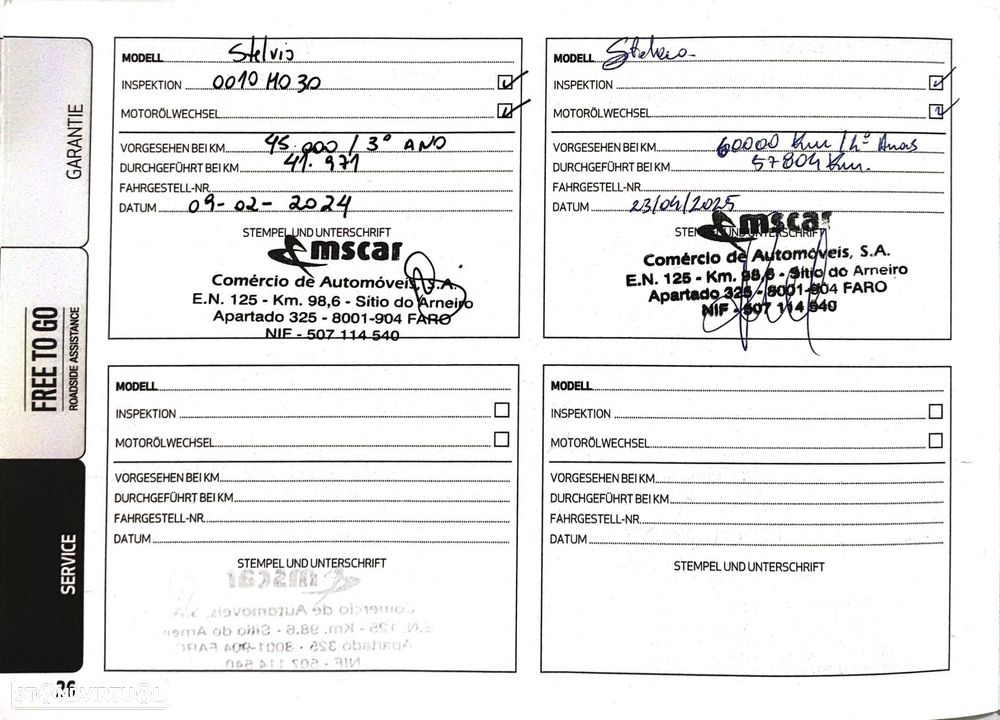 GARANTIE
FREE TO GO
ROADSIDE ASSISTANCE
SERVICE
MODELL Stelvio
INSPEKTION 0010 M030
MOTORÖLWECHSEL
VORGESEHEN BEI KM 45.000 / 3º ANO
DURCHGEFÜHRT BEI KM 41.971
FAHRGESTELL-NR.
DATUM 09-02-2024
STEMPEL UND UNTERSCHRIFT
mscar
Comércio de Automóveis, S.A.
E.N. 125 - Km. 98,6 - Sítio do Arneiro
Apartado 325 - 8001-904 FARO
NIF - 507 114 540
MODELL
INSPEKTION
MOTORÖLWECHSEL
VORGESEHEN BEI KM 60000 Km / 4º Anos
DURCHGEFÜHRT BEI KM 57804 Km.
FAHRGESTELL-NR.
DATUM 23/04/2025
STEMPEL UND UNTERSCHRIFT
mscar
Comércio de Automóveis, S.A.
E.N. 125 - Km. 98,6 - Sítio do Arneiro
Apartado 325 - 8001-904 FARO
NIF - 507 114 540
MODELL
INSPEKTION
MOTORÖLWECHSEL
VORGESEHEN BEI KM
DURCHGEFÜHRT BEI KM
FAHRGESTELL-NR.
DATUM
STEMPEL UND UNTERSCHRIFT
mscar
Comércio de Automóveis, S.A.
E.N. 125 - Km. 98,6 - Sítio do Arneiro
Apartado 325 - 8001-904 FARO
NIF - 507 114 540
MODELL
INSPEKTION
MOTORÖLWECHSEL
VORGESEHEN BEI KM
DURCHGEFÜHRT BEI KM
FAHRGESTELL-NR.
DATUM
STEMPEL UND UNTERSCHRIFT
26
STANDVIRTUAL